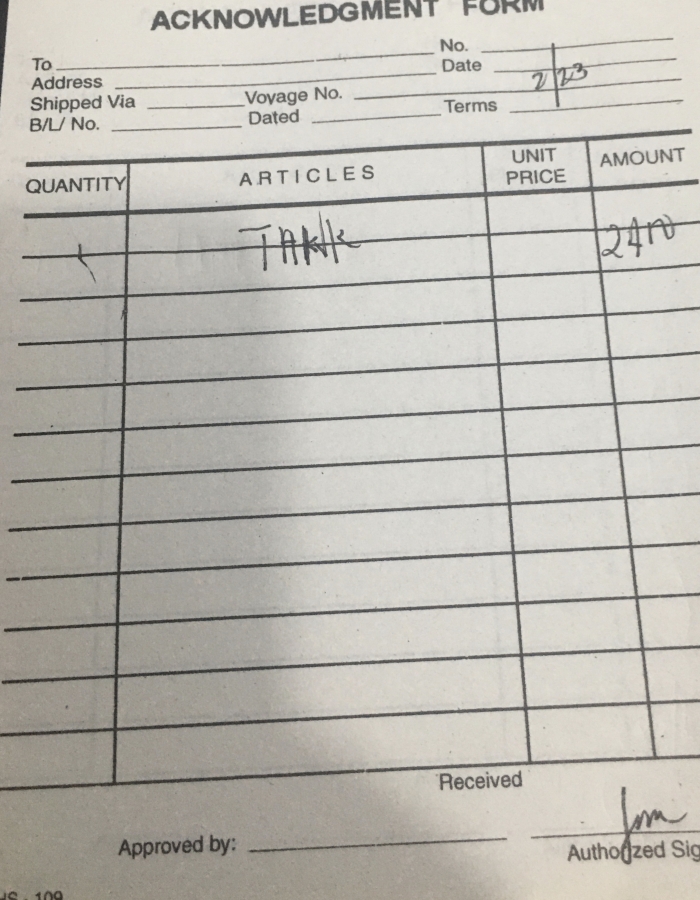 ACKNOWLEDGMENT FORM
To No.
Address Date 2/23
Shipped Via Voyage No.
B/L/ No. Dated Terms
QUANTITY ARTICLES UNIT PRICE AMOUNT
1 TANK
Received
Approved by:
Authorized Sig
HS - 109